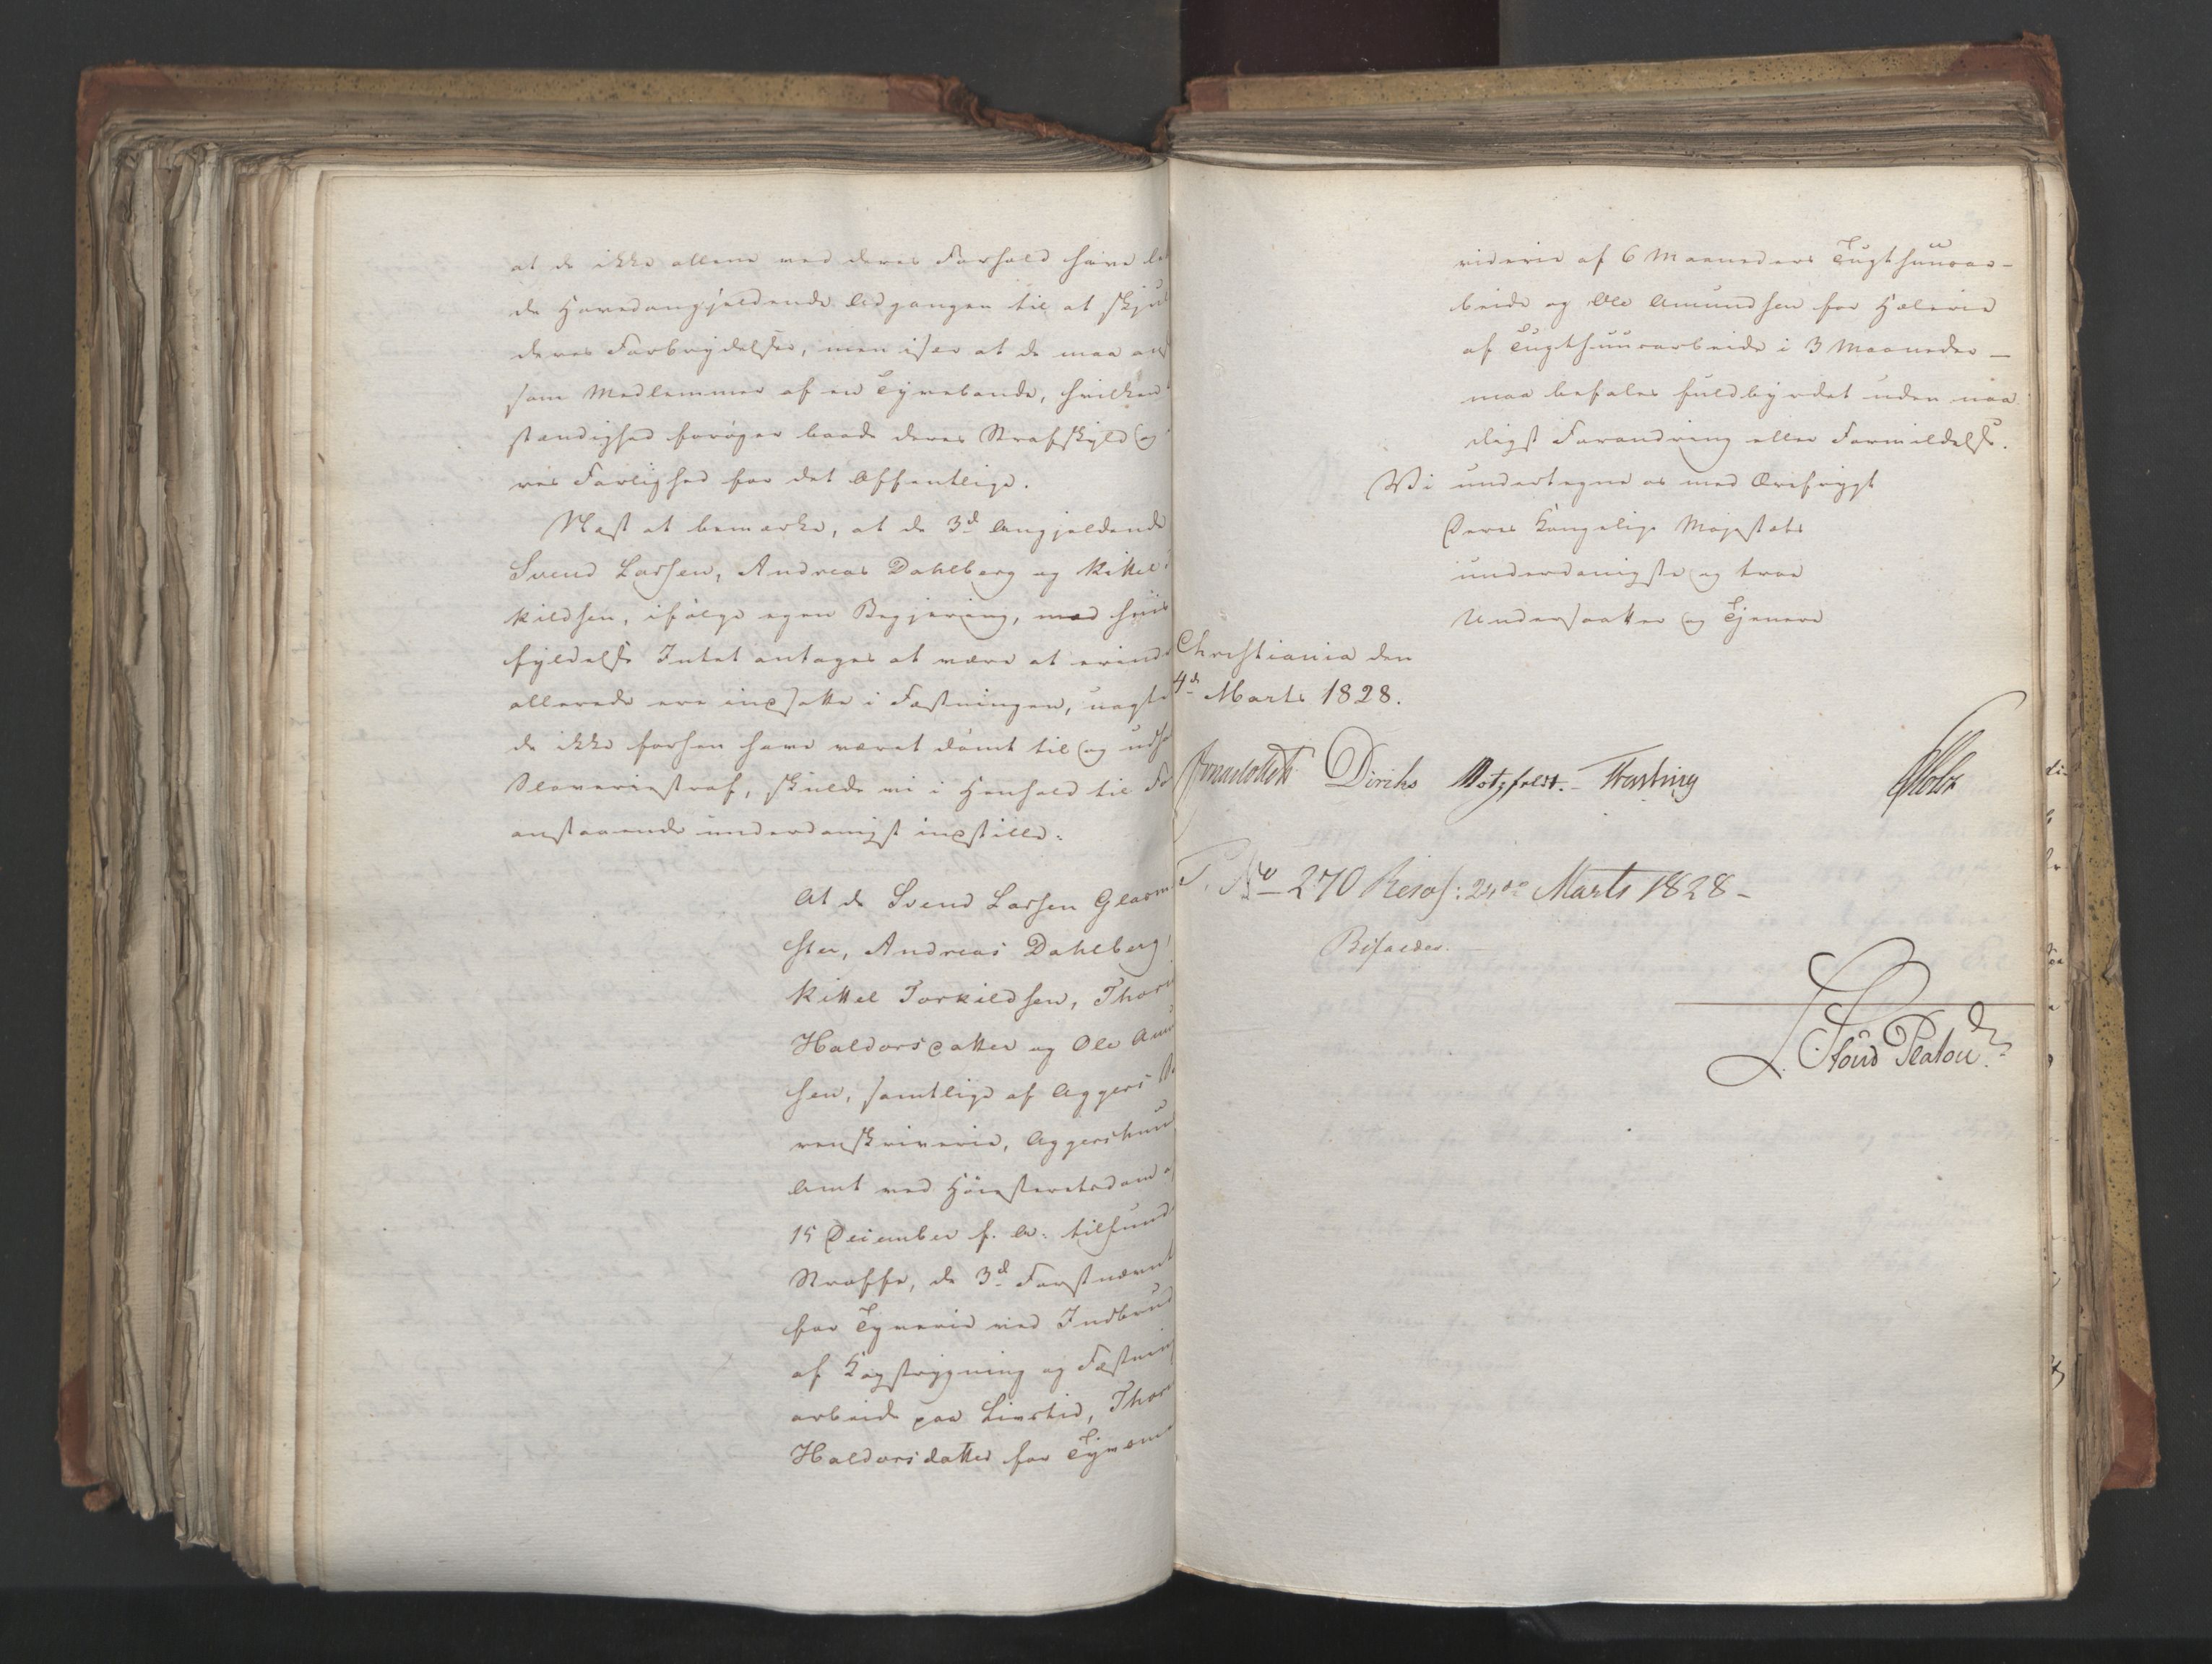 at de ikke allene ved deres Forhold have le
de Hovedangjeldende Adgangen til at skju
deres Forbrydelser, men især at de maa an
som Medlemmer af en Tyvebande, hvilken
stændighed forøger baade deres Strafskyld og
res Farlighed for det Offentlige.
Næst at bemærke, at de 3de Angjeldende
Svend Larsen, Andreas Dahlberg og Kittel
kildsen, ifølge egen Begjering, mod hvis
fyldelse Intet antages at være at erind
allerede ere indsatte i Fæstningen, uagt
de ikke forhen have været dømt til og udh
Slaveriestraf, skulde vi i Henhold til Fo
anstaaende underdanigst indstille:
At de Svend Larsen Glasm
ster, Andreas Dahlberg,
Kittel Torkildsen, Thor
Haldorsdatter og Ole Am
sen, samtlige af Aggers So
renskriverie, Aggershuus
Amt ved Høiesteretsdom a
15 December f. A. tilfund
Straffe, de 3de Førstnævnt
for Tyverie ved Indbrud
af Kagstrygning og Fæstnin
arbeide paa Livstid, Thor
Haldorsdatter for Tyvem
viderie af 6 Maaneders Tugthuusar-
beide og Ole Amundsen for Hælerie
af Tugthuusarbeide i 3 Maaneder –
maa befales fuldbyrdet uden naa
digst Forandring eller Formildelse.
Vi undertegne os med Ærefrygt
Deres Kongelige Majestæts
underdanigste og troe
Undersaatter og Tjenere
Christiania den
4de Marts 1828.
Diriks Motzfeldt. Krag Holst
P. No 270 Resol: 24de Marts 1828 –
Bifaldes.
Stoud Platou